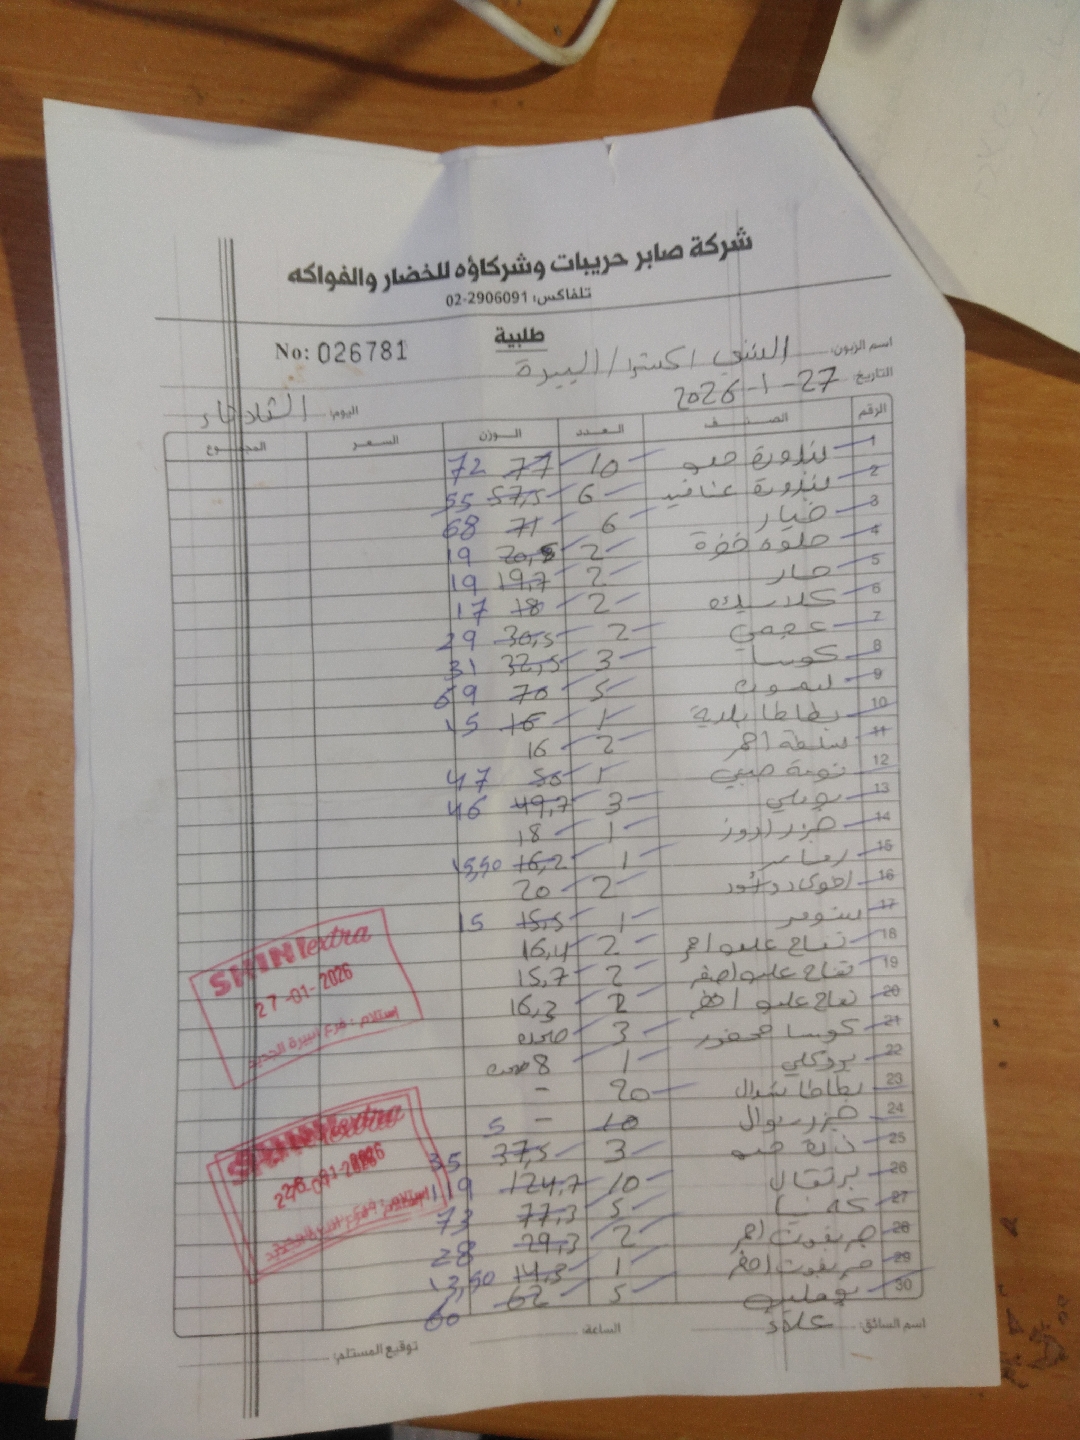 شركة صابر حريبات وشركاؤه للخضار والفواكه
تلفاكس: 02-2906091
طلبية
No: 026781
اسم الزبون: الشني اكسترا / البيرة
التاريخ: 27-1-2026
اليوم: الثلاثاء
الرقم الصنف العدد الوزن السعر المجموع
1 بندورة حبو 10 77 72
2 بندورة عناقيد 6 57,5 55
3 خيار 6 71 68
4 حلوه خضرة 2 20,5 19
5 حار 2 19,7 19
6 كلاسيك 2 18 17
7 عجمي 2 30,5 29
8 كوسا 3 32,5 31
9 ليمون 5 70 69
10 بطاطا بلدية 1 16 15
11 احمر 2 16
12 50 47
13 3 49,7 46
14 جزر 1 18
15 1 16,2 15,50
16 2 20
17 1 15,5 15
18 تفاح علبو احمر 2 16,4
19 تفاح علبو اصفر 2 15,7
20 تفاح علبو اخضر 2 16,3
21 كوسا محفور 3 صحن
22 بروكلي 1 8 صحن
23 بطاطا شوال 20 -
24 جزر شوال 10 - 5
25 ذرة 3 37,5 35
26 برتقال 10 124,7 119
27 5 77,3 73
28 جريفوت احمر 2 29,3 28
29 جريفوت اصفر 1 14,3 13,50
30 بوملي 5 62 60
اسم السائق: علاء
الساعة:
توقيع المستلم:
SHINI extra
27-01-2026
إستلام: فرع البيرة الجديد
SHINI extra